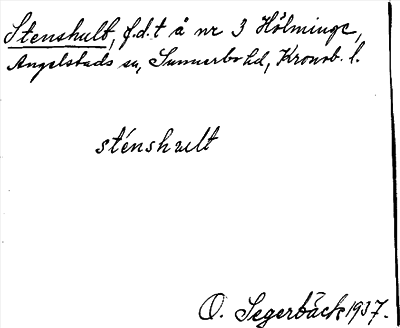 Stenshult, f.d.t å nr 3 Hölminge,
Angelstads sn, Sunnerbo hd, Kronob. l.
sténshult
O. Segerbäck 1937.